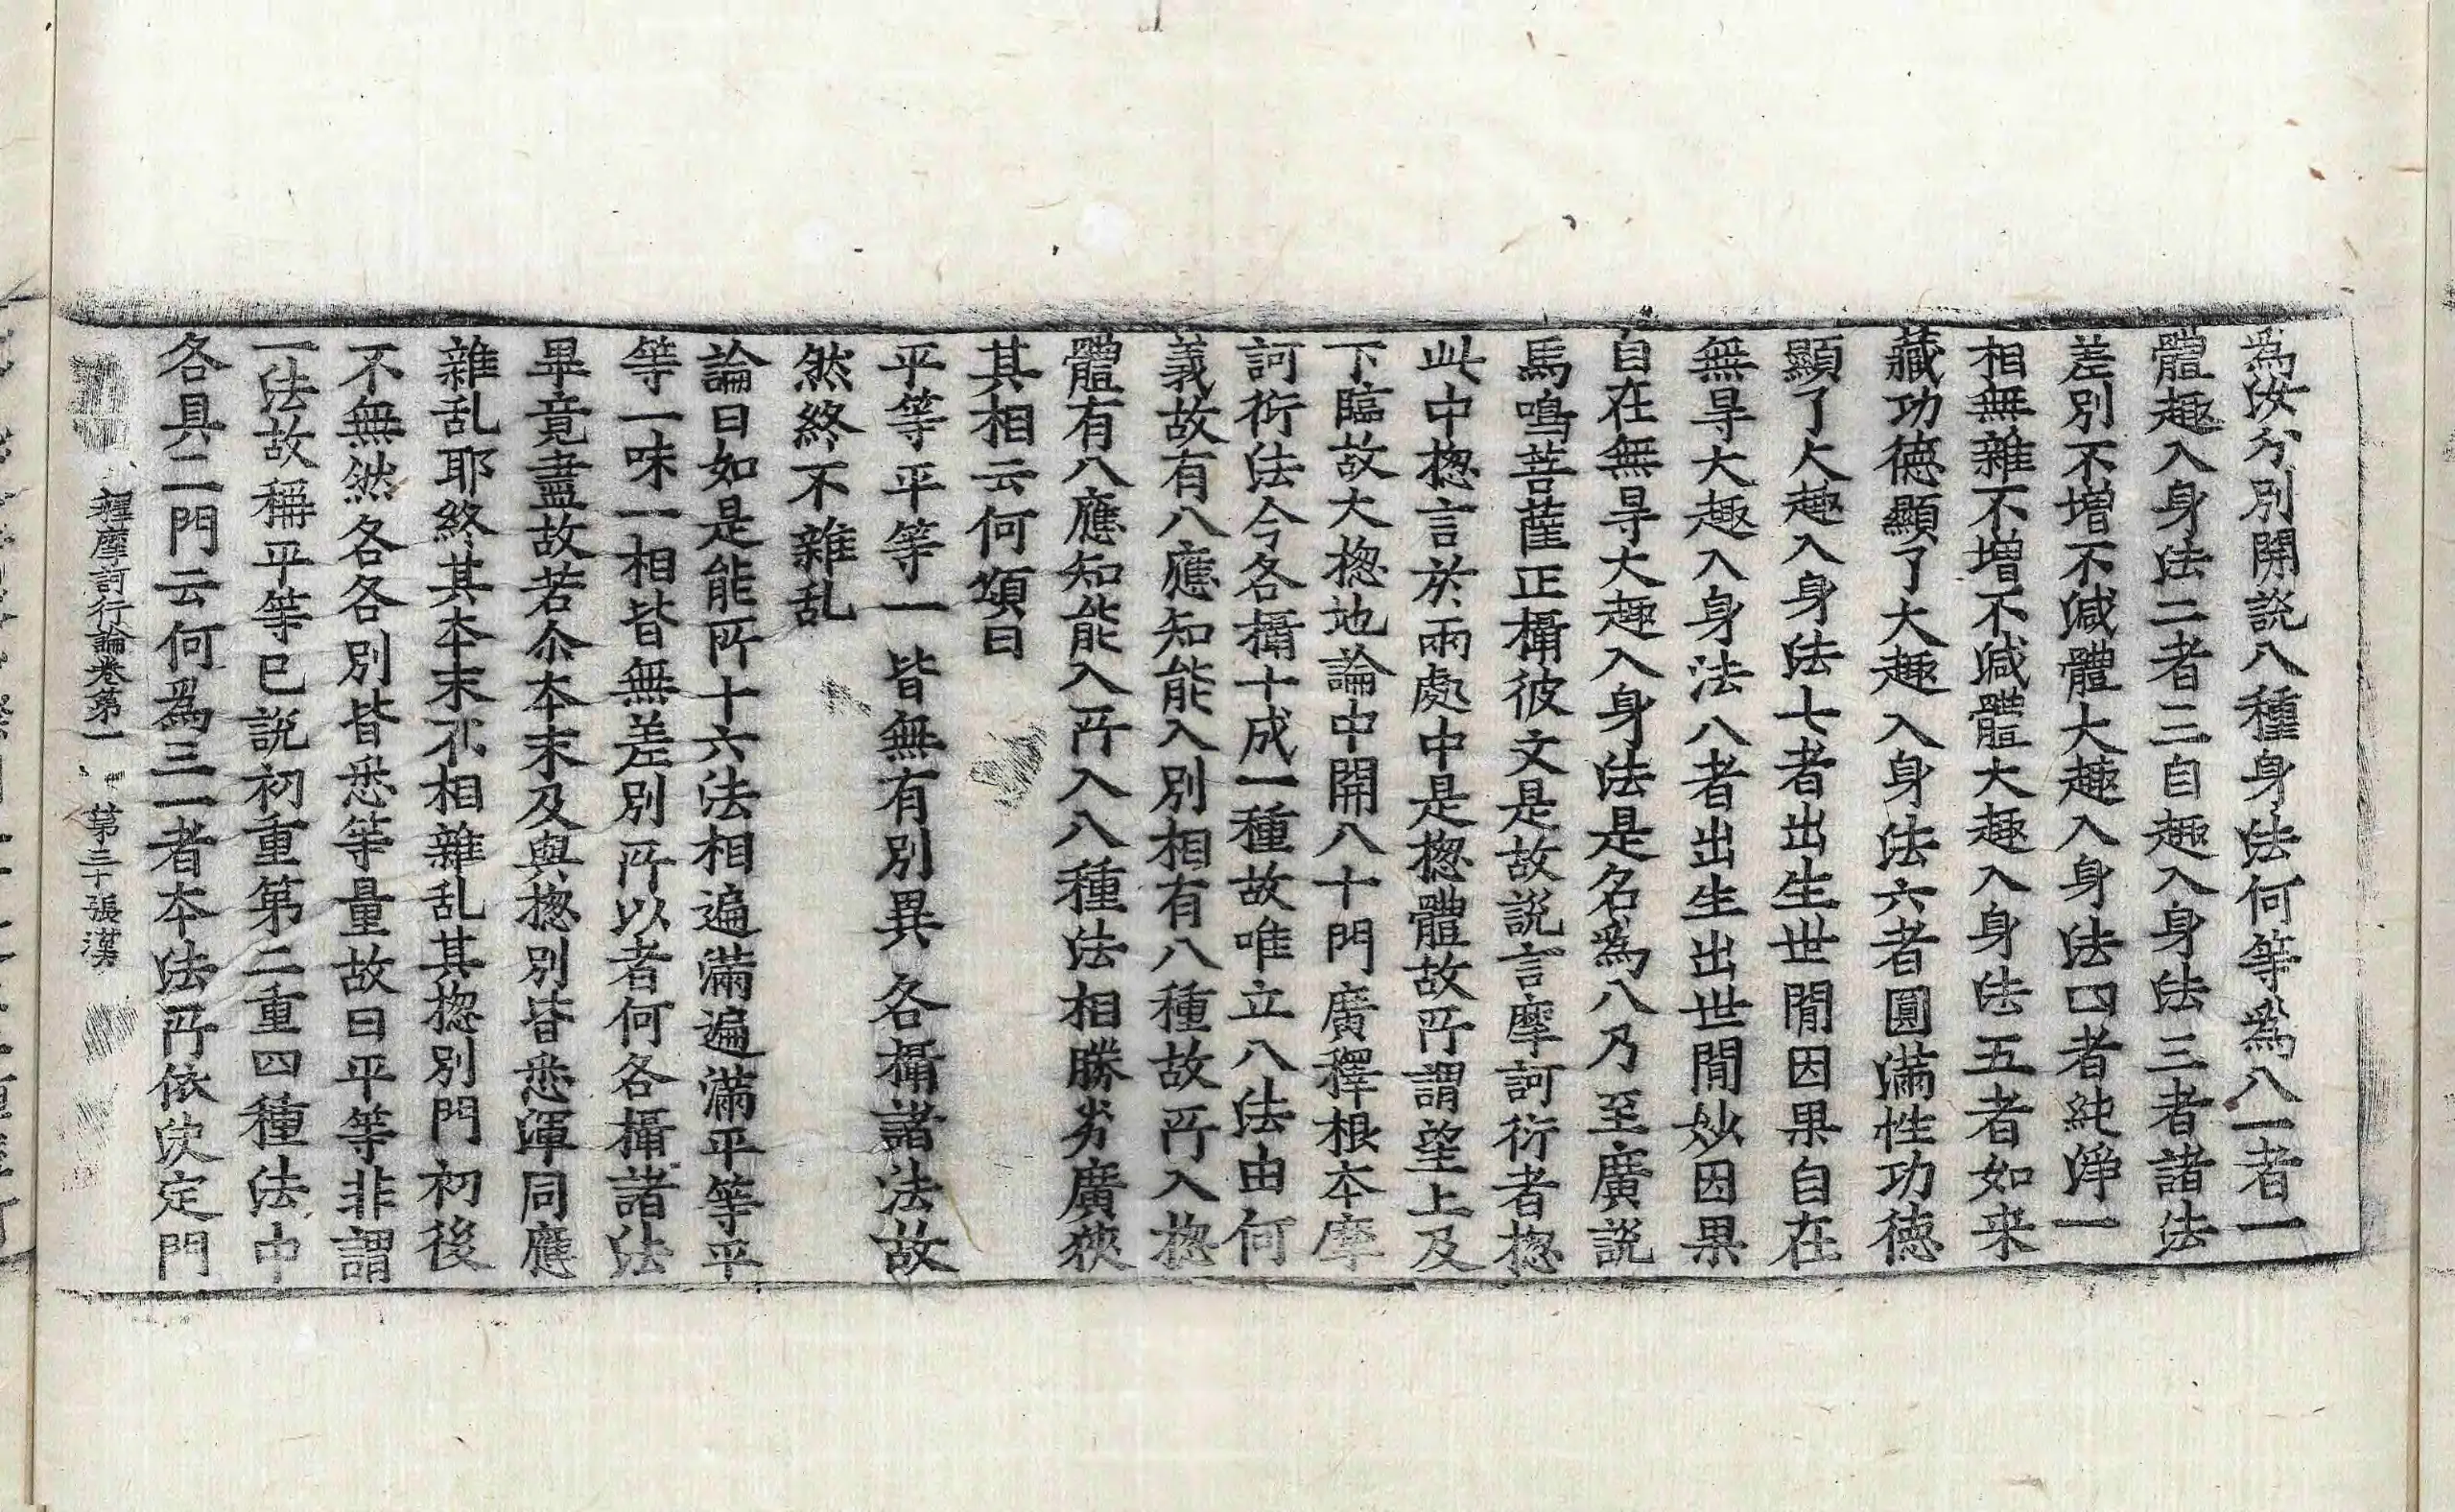 爲汝分別開說八種身法何等爲八一者一
體趣入身法二者三自趣入身法三者諸法
差別不增不減體大趣入身法四者純淨一
相無雜不增不減體大趣入身法五者如来
藏功德顯了大趣入身法六者圓滿性功德
顯了大趣入身法七者出生世閒因果自在
無㝵大趣入身法八者出生出世閒妙因果
自在無㝵大趣入身法是名爲八乃至廣說
馬鳴菩薩正攝彼文是故說言摩訶衍者揔
此中揔言於兩處中是揔體故所謂望上及
下臨故大揔地論中開八十門廣釋根本摩
訶衍法今各攝十成一種故唯立八法由何
義故有八應知能入別相有八種故所入揔
體有八應知能入所入八種法相勝劣廣狹
其相云何頌曰
平等平等一 皆無有別異 各攝諸法故
然終不雜乱
論曰如是能所十六法相遍滿遍滿平等平
等一味一相皆無差別所以者何各攝諸法
畢竟盡故若尒本末及與揔別皆悉渾同應
雜乱耶終其本末不相雜乱其揔別門初後
不無然各各別皆悉等量故曰平等非謂
一法故稱平等已說初重第二重四種法中
各具二門云何爲三一者本法所依决定門
釋摩訶衍論卷第一 第三十張 漢